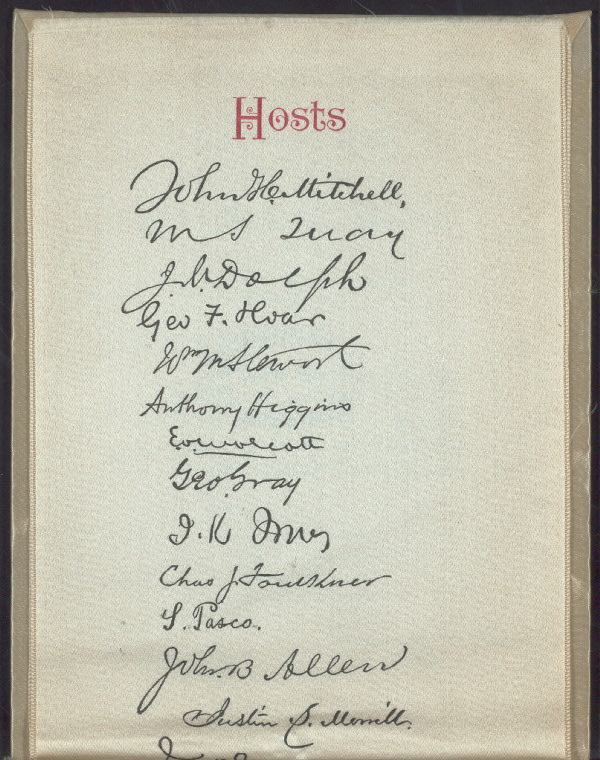 Hosts
John H. Mitchell,
M S Quay
J. N. Dolph
Geo F. Hoar
Wm M Stewart
Anthony Higgins
E O Wolcott
Geo Gray
J. K Jones
Chas J. Faulkner
S. Pasco.
John B Allen
Justin S. Morrill.